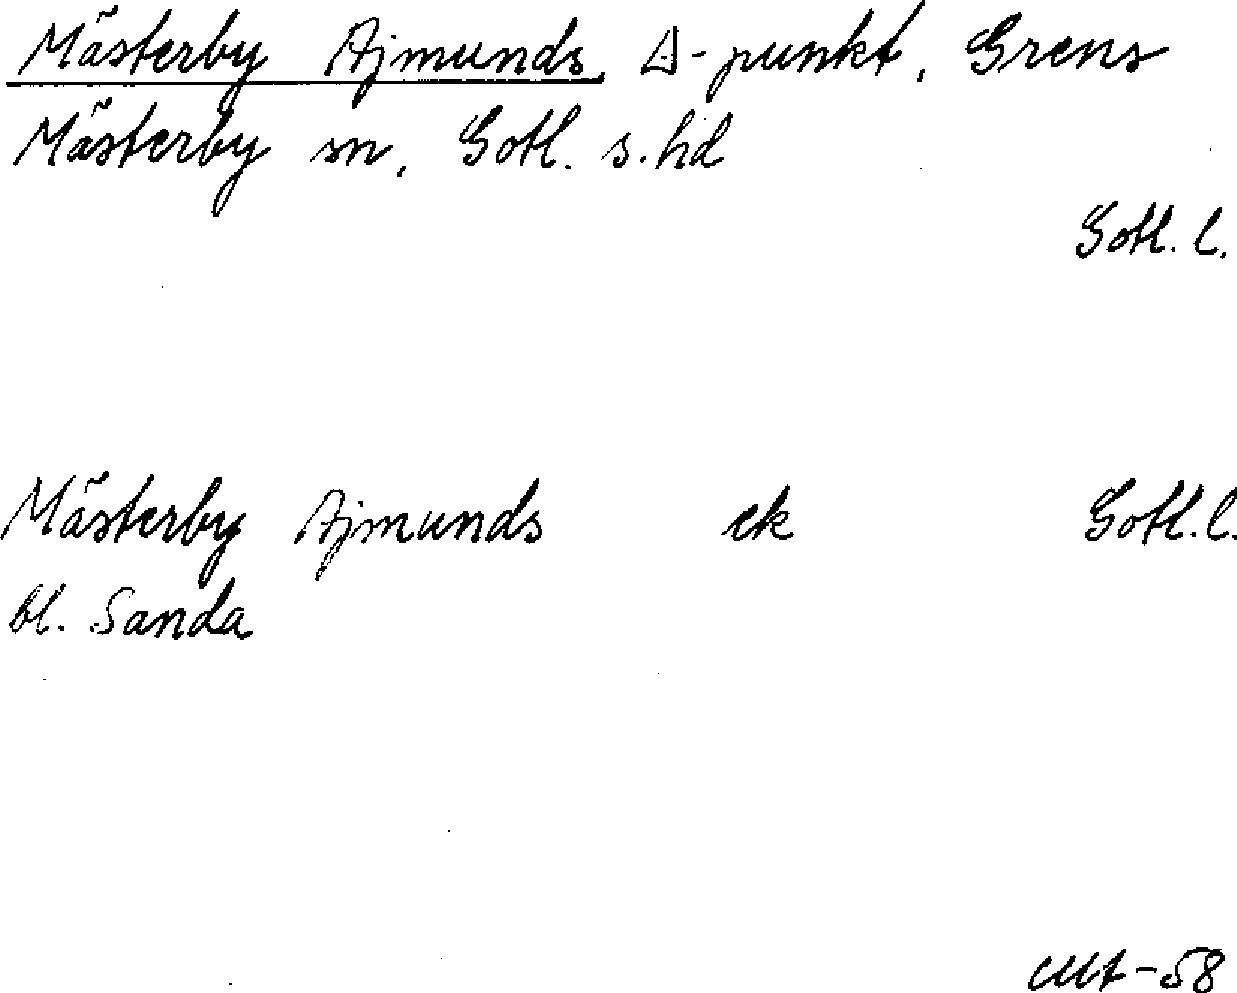 Mästerby Ajmunds, Δ-punkt, Grens
Mästerby sn, Gotl. s. hd
Gotl. l.
Mästerby Ajmunds ek Gotl. l.
bl. Sanda
-58